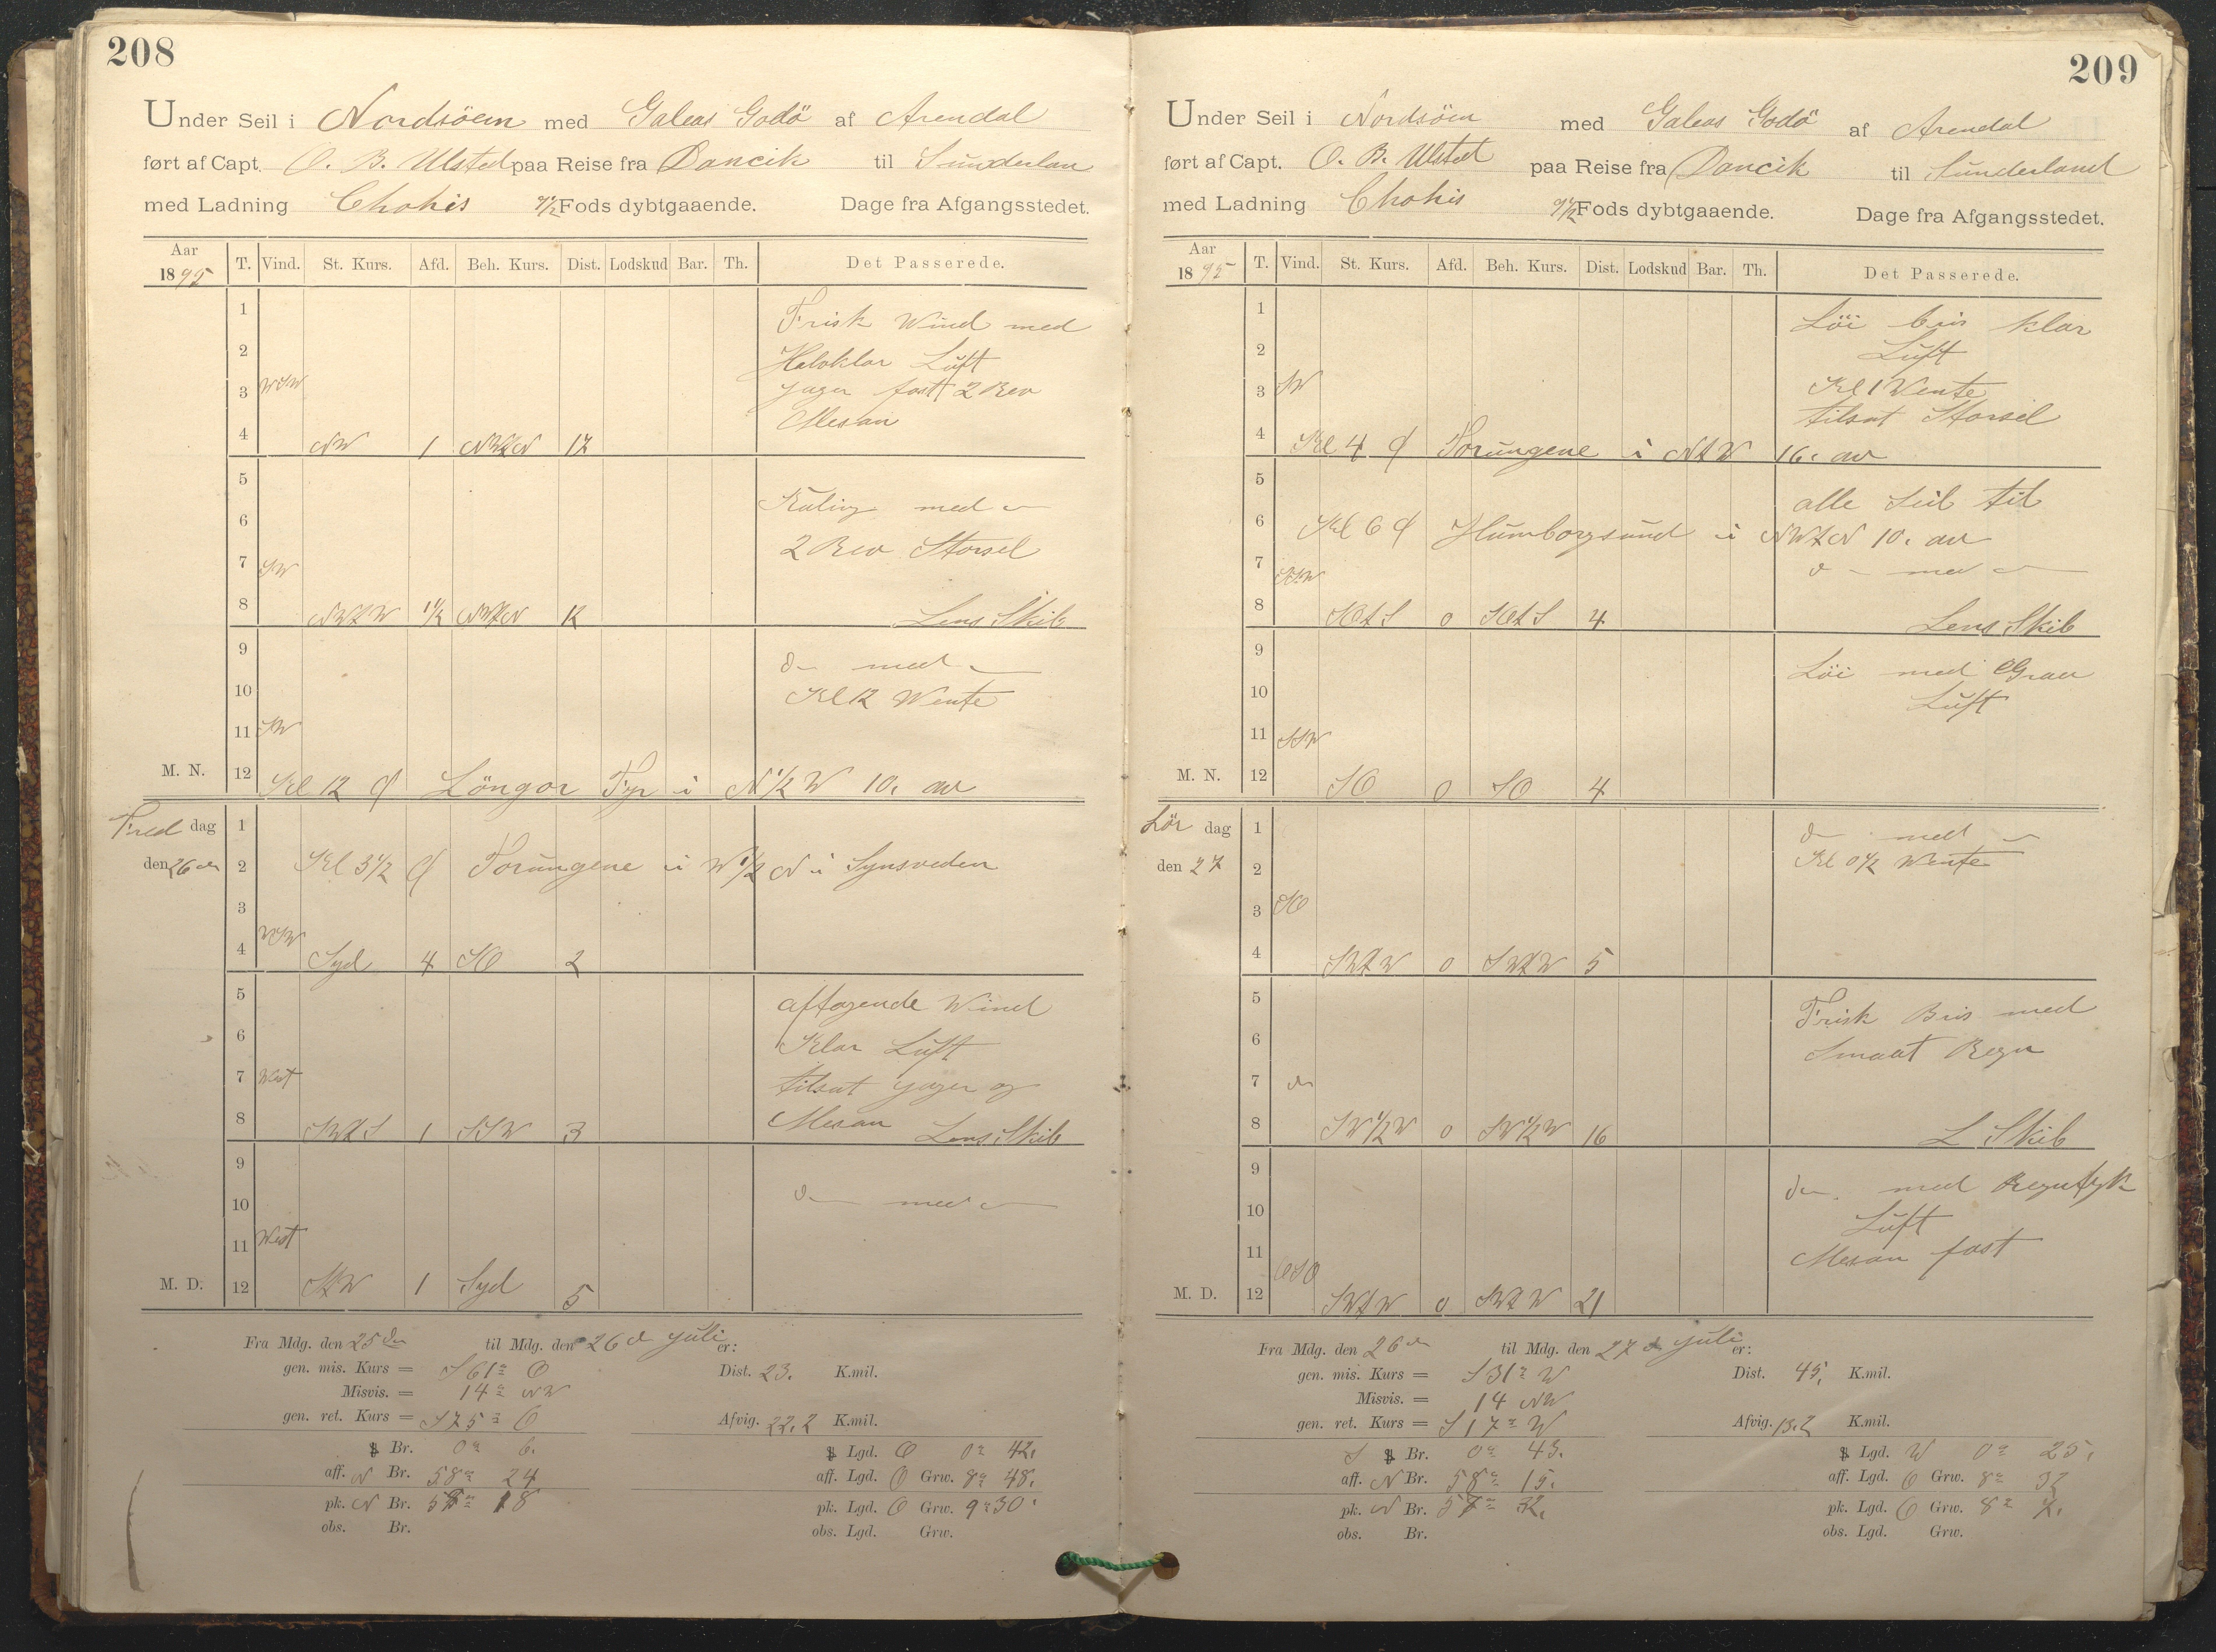 208
Under Seil i Nordsöen med Galeas Godö af Arendal
ført af Capt. O. B. Ulsted paa Reise fra Dancik til Sunderlan
med Ladning 9½ Fods dybtgaaende. Dage fra Afgangsstedet.
Aar 1895 T. Vind. St. Kurs. Afd. Beh. Kurs. Dist. Lodskud Bar. Th. Det Passerede.
1 Frisk Wind med
2 Halvklar Luft
3 WSW Jager fast 2 Rev
4 NW 1 NWtN 17 Mesan
5
6 Kuling med
7 SW 2 Rev Storsel
8 NWtW 1½ NWtN 12 Lens Skib
9 d med
10 Kl 12 Wente
11 SW
M. N. 12 Kl 12 Löngör Fyr i N½W 10, av
Fredag 1
den 26 de 2 Kl 3½ Torungene i W½N i Synsveden
3
4 WSW Syd 4 SO 2
5 aftagende Wind
6 Klar Luft
7 West tilsat jager og
8 SWtS 1 SSW 3 Mesan Lens Skib
9
10 d med
11 West
M. D. 12 StW 1 Syd 5
Fra Mdg. den 25 de til Mdg. den 26 d juli er:
gen. mis. Kurs = S 61° O Dist. 23. K.mil.
Misvis. = 14° NW
gen. ret. Kurs = S 75° O Afvig. 22,2 K.mil.
Br. 0° 6. Lgd. O 0° 42.
aff. N Br. 58° 24 aff. Lgd. O Grw. 8° 48.
pk. N Br. 58° 18 pk. Lgd. O Grw. 9° 30'
obs. Br. obs. Lgd. Grw.
209
Under Seil i Nordsöen med Galeas Godö af Arendal
ført af Capt. O. B. Ulsted paa Reise fra Dancik til Sunderland
med Ladning 9½ Fods dybtgaaende. Dage fra Afgangsstedet.
Aar 1895 T. Vind. St. Kurs. Afd. Beh. Kurs. Dist. Lodskud Bar. Th. Det Passerede.
1 Löi bris klar
2 Luft
3 SW Kl 1 Wente
tilsat Storsel
4 Kl 4 Torungene i NtW 16. av
5 alle Seil til
6 Kl 6 Humborgsund i NWtN 10. av
7 SSW d med
8 SOtS 0 SOtS 4 Lens Skib
9 Löi med Grau
10 Luft
11 SSW
M. N. 12 SO 0 SO 4
Lör dag 1 d med
den 27 2 Kl 0½ Wente
3 SO
4 SWtW 0 SWtW 5
5 Frisk Bris med
6 Smaat Regn
7 do
8 SW½W 0 SW½W 16 L Skib
9 do. med Regntyk
10 Luft
11 OSO Mesan fast
M. D. 12 SWtW 0 SWtW 21
Fra Mdg. den 26 de til Mdg. den 27 d juli er:
gen. mis. Kurs = S 31° W Dist. 45, K.mil.
Misvis. = 14 NW
gen. ret. Kurs = S 17° W Afvig. 13,2 K.mil.
S Br. 0° 43. Lgd. W 0° 25.
aff. N Br. 58° 15. aff. Lgd. O Grw. 8° 32
pk. N Br. 57° 32. pk. Lgd. O Grw. 8° 7.
obs. Br. obs. Lgd. Grw.